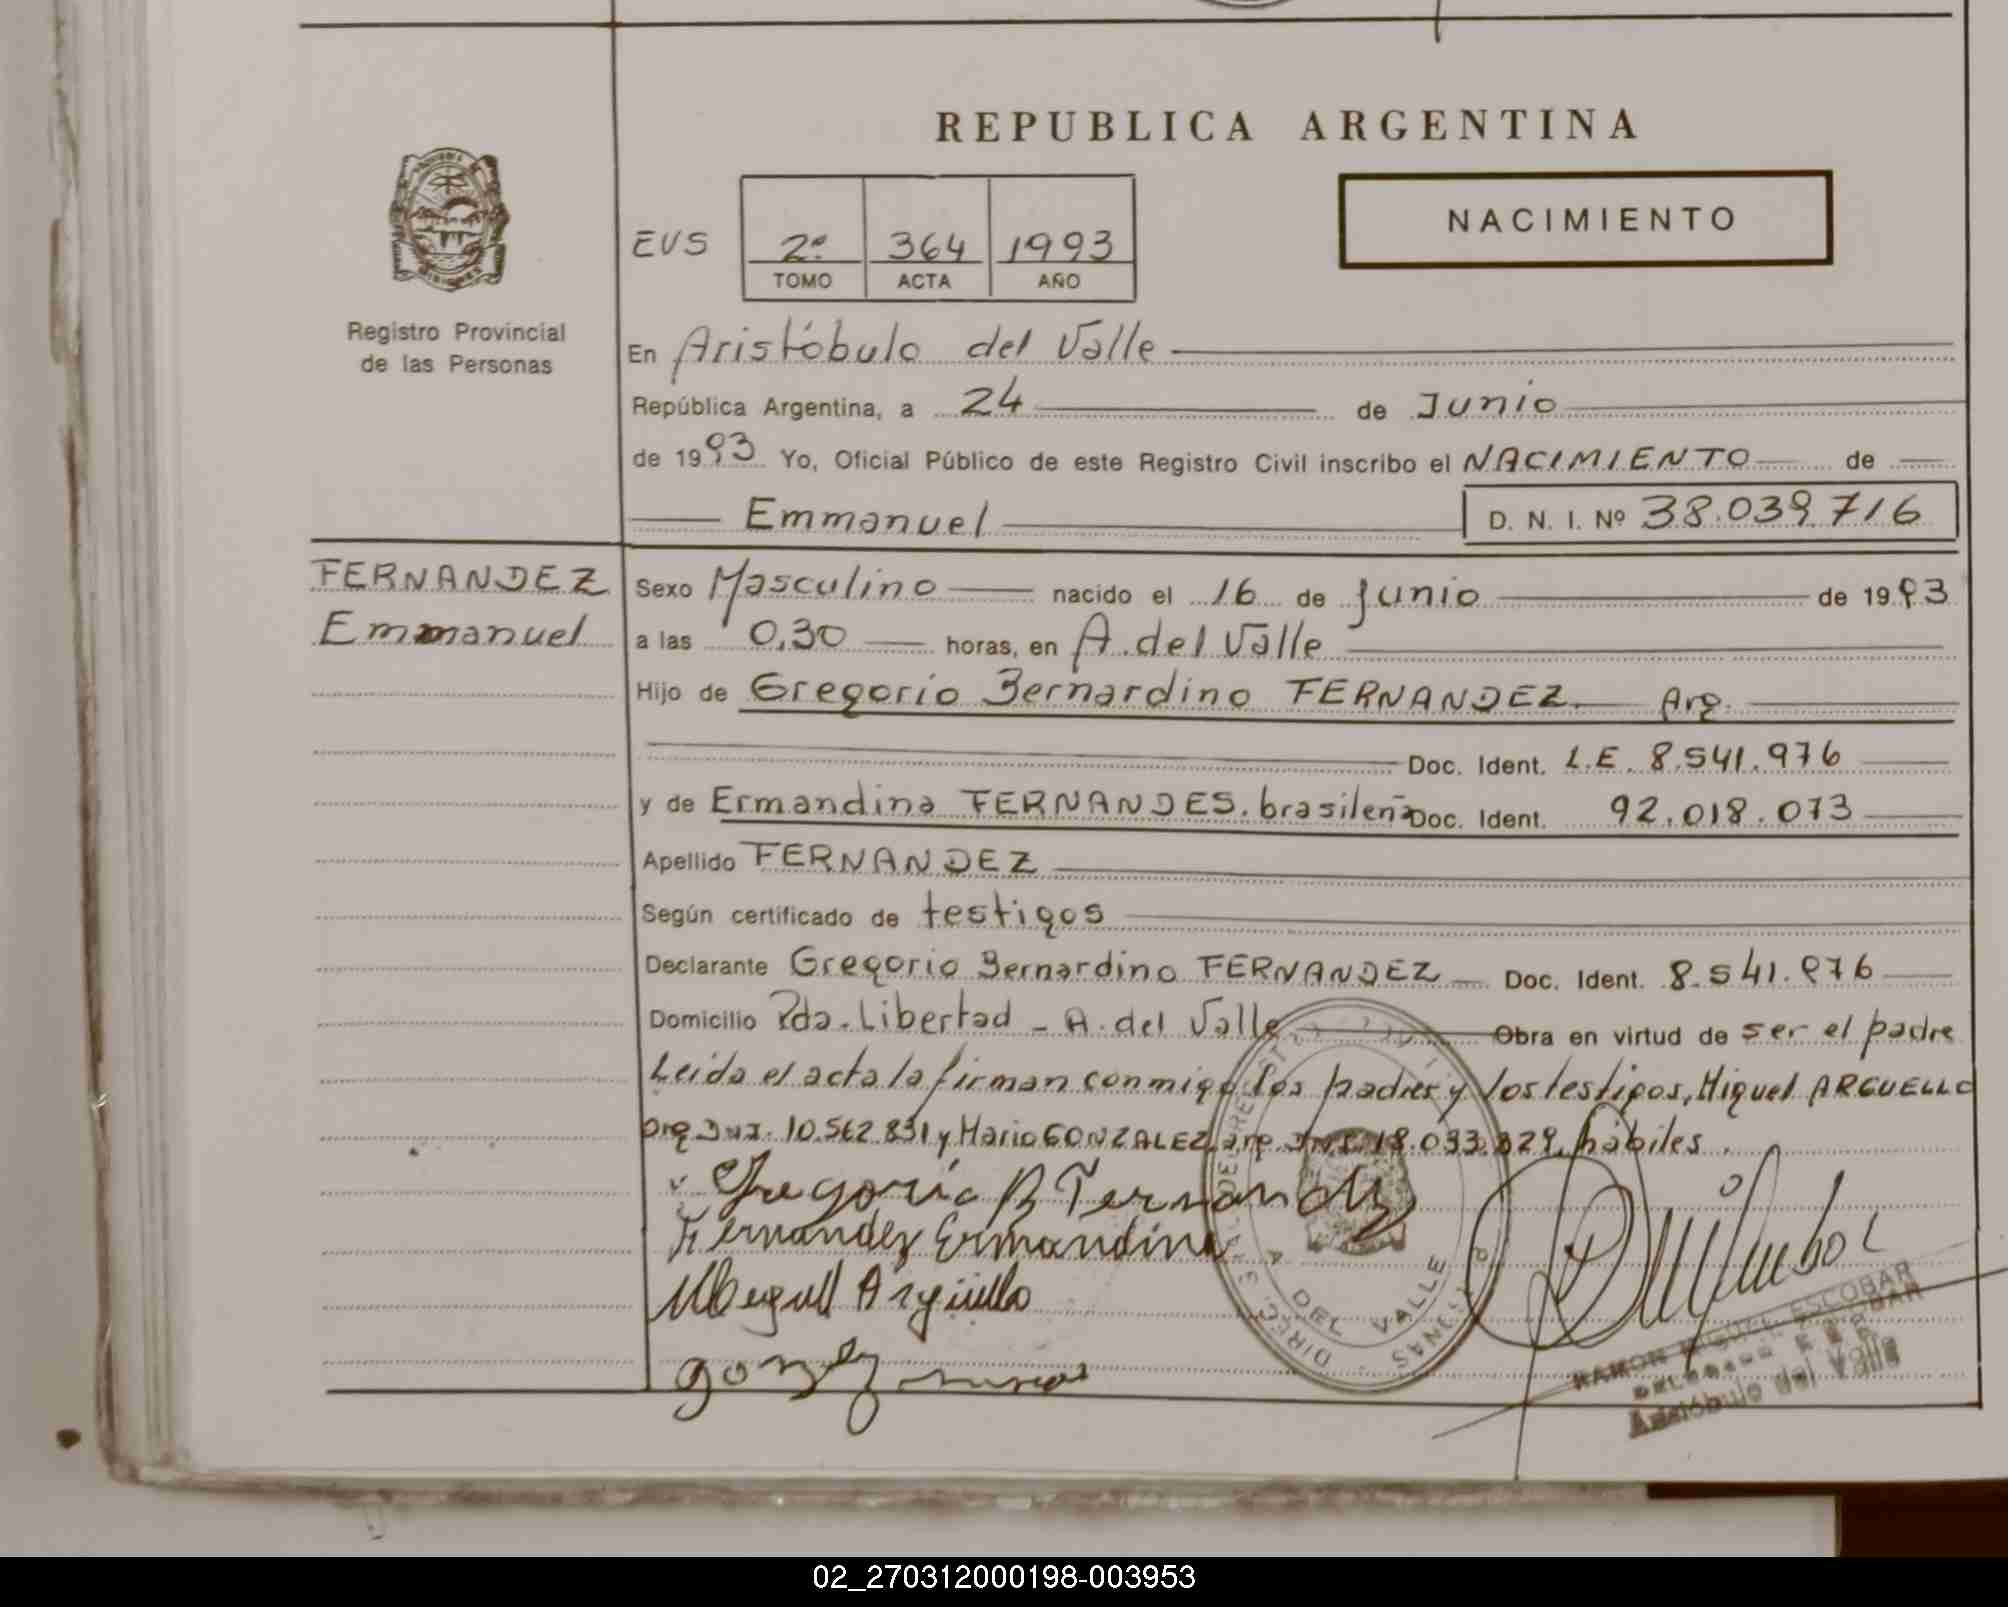 REPUBLICA ARGENTINA
NACIMIENTO
EVS 2º 364 1993
TOMO ACTA AÑO
Registro Provincial
de las Personas
En Aristóbulo del Valle
República Argentina, a 24 de Junio
de 1993 Yo, Oficial Público de este Registro Civil inscribo el NACIMIENTO de
Emmanuel D. N. I. Nº 38.039.716
FERNANDEZ
Emmanuel
Sexo Masculino nacido el 16 de Junio de 1993
a las 0,30 horas, en A. del Valle
Hijo de Gregorio Bernardino FERNANDEZ. Arg.
Doc. Ident. L.E. 8.541.976
y de Ermandina FERNANDES. brasileña Doc. Ident. 92.018.073
Apellido FERNANDEZ
Según certificado de testigos
Declarante Gregorio Bernardino FERNANDEZ Doc. Ident. 8.541.976
Domicilio Pda. Libertad - A. del Valle Obra en virtud de ser el padre
Leída el acta la firman conmigo los padres y los testigos, Miguel ARGUELLO
arg. DNI. 10.562.831 y Mario GONZALEZ, arg. DNI. 18.033.329, hábiles.
Gregorio B Fernandez
Fernandez Ermandina
Miguel Argüello
DEL VALLE
RAMON MIGUEL ESCOBAR
Aristóbulo del Valle
02_270312000198-003953